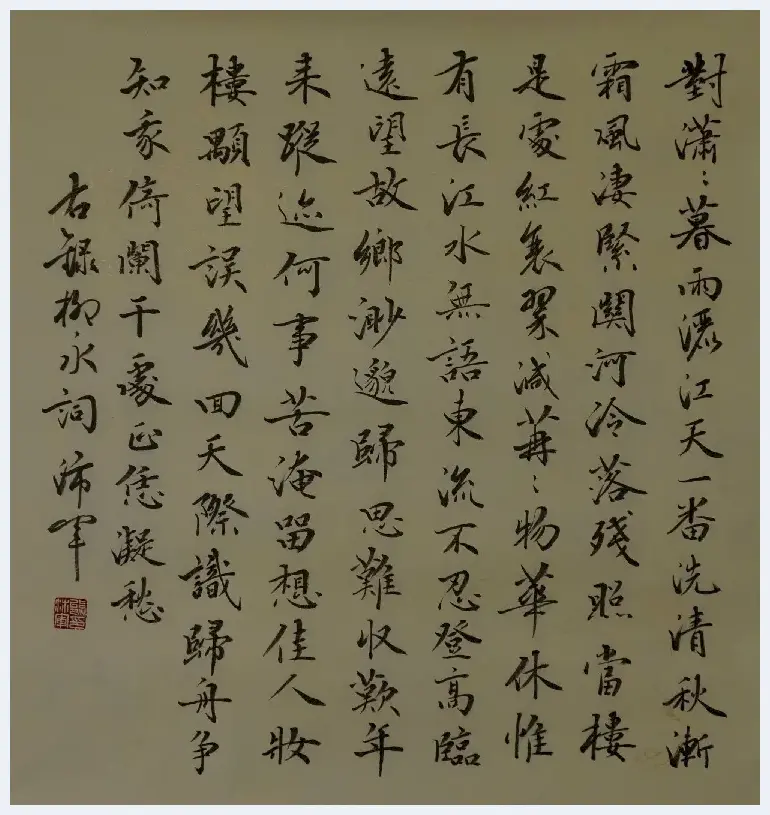 對瀟〻暮雨灑江天一番洗清秋漸
霜風淒緊關河冷落殘照當樓
是處紅衰翠減苒〻物華休惟
有長江水無語東流不忍登高臨
遠望故鄉渺邈歸思難收歎年
来蹤迹何事苦淹留想佳人妝
樓顒望誤幾回天際識歸舟争
知我倚闌干處正恁凝愁
右錄柳永詞沛軍